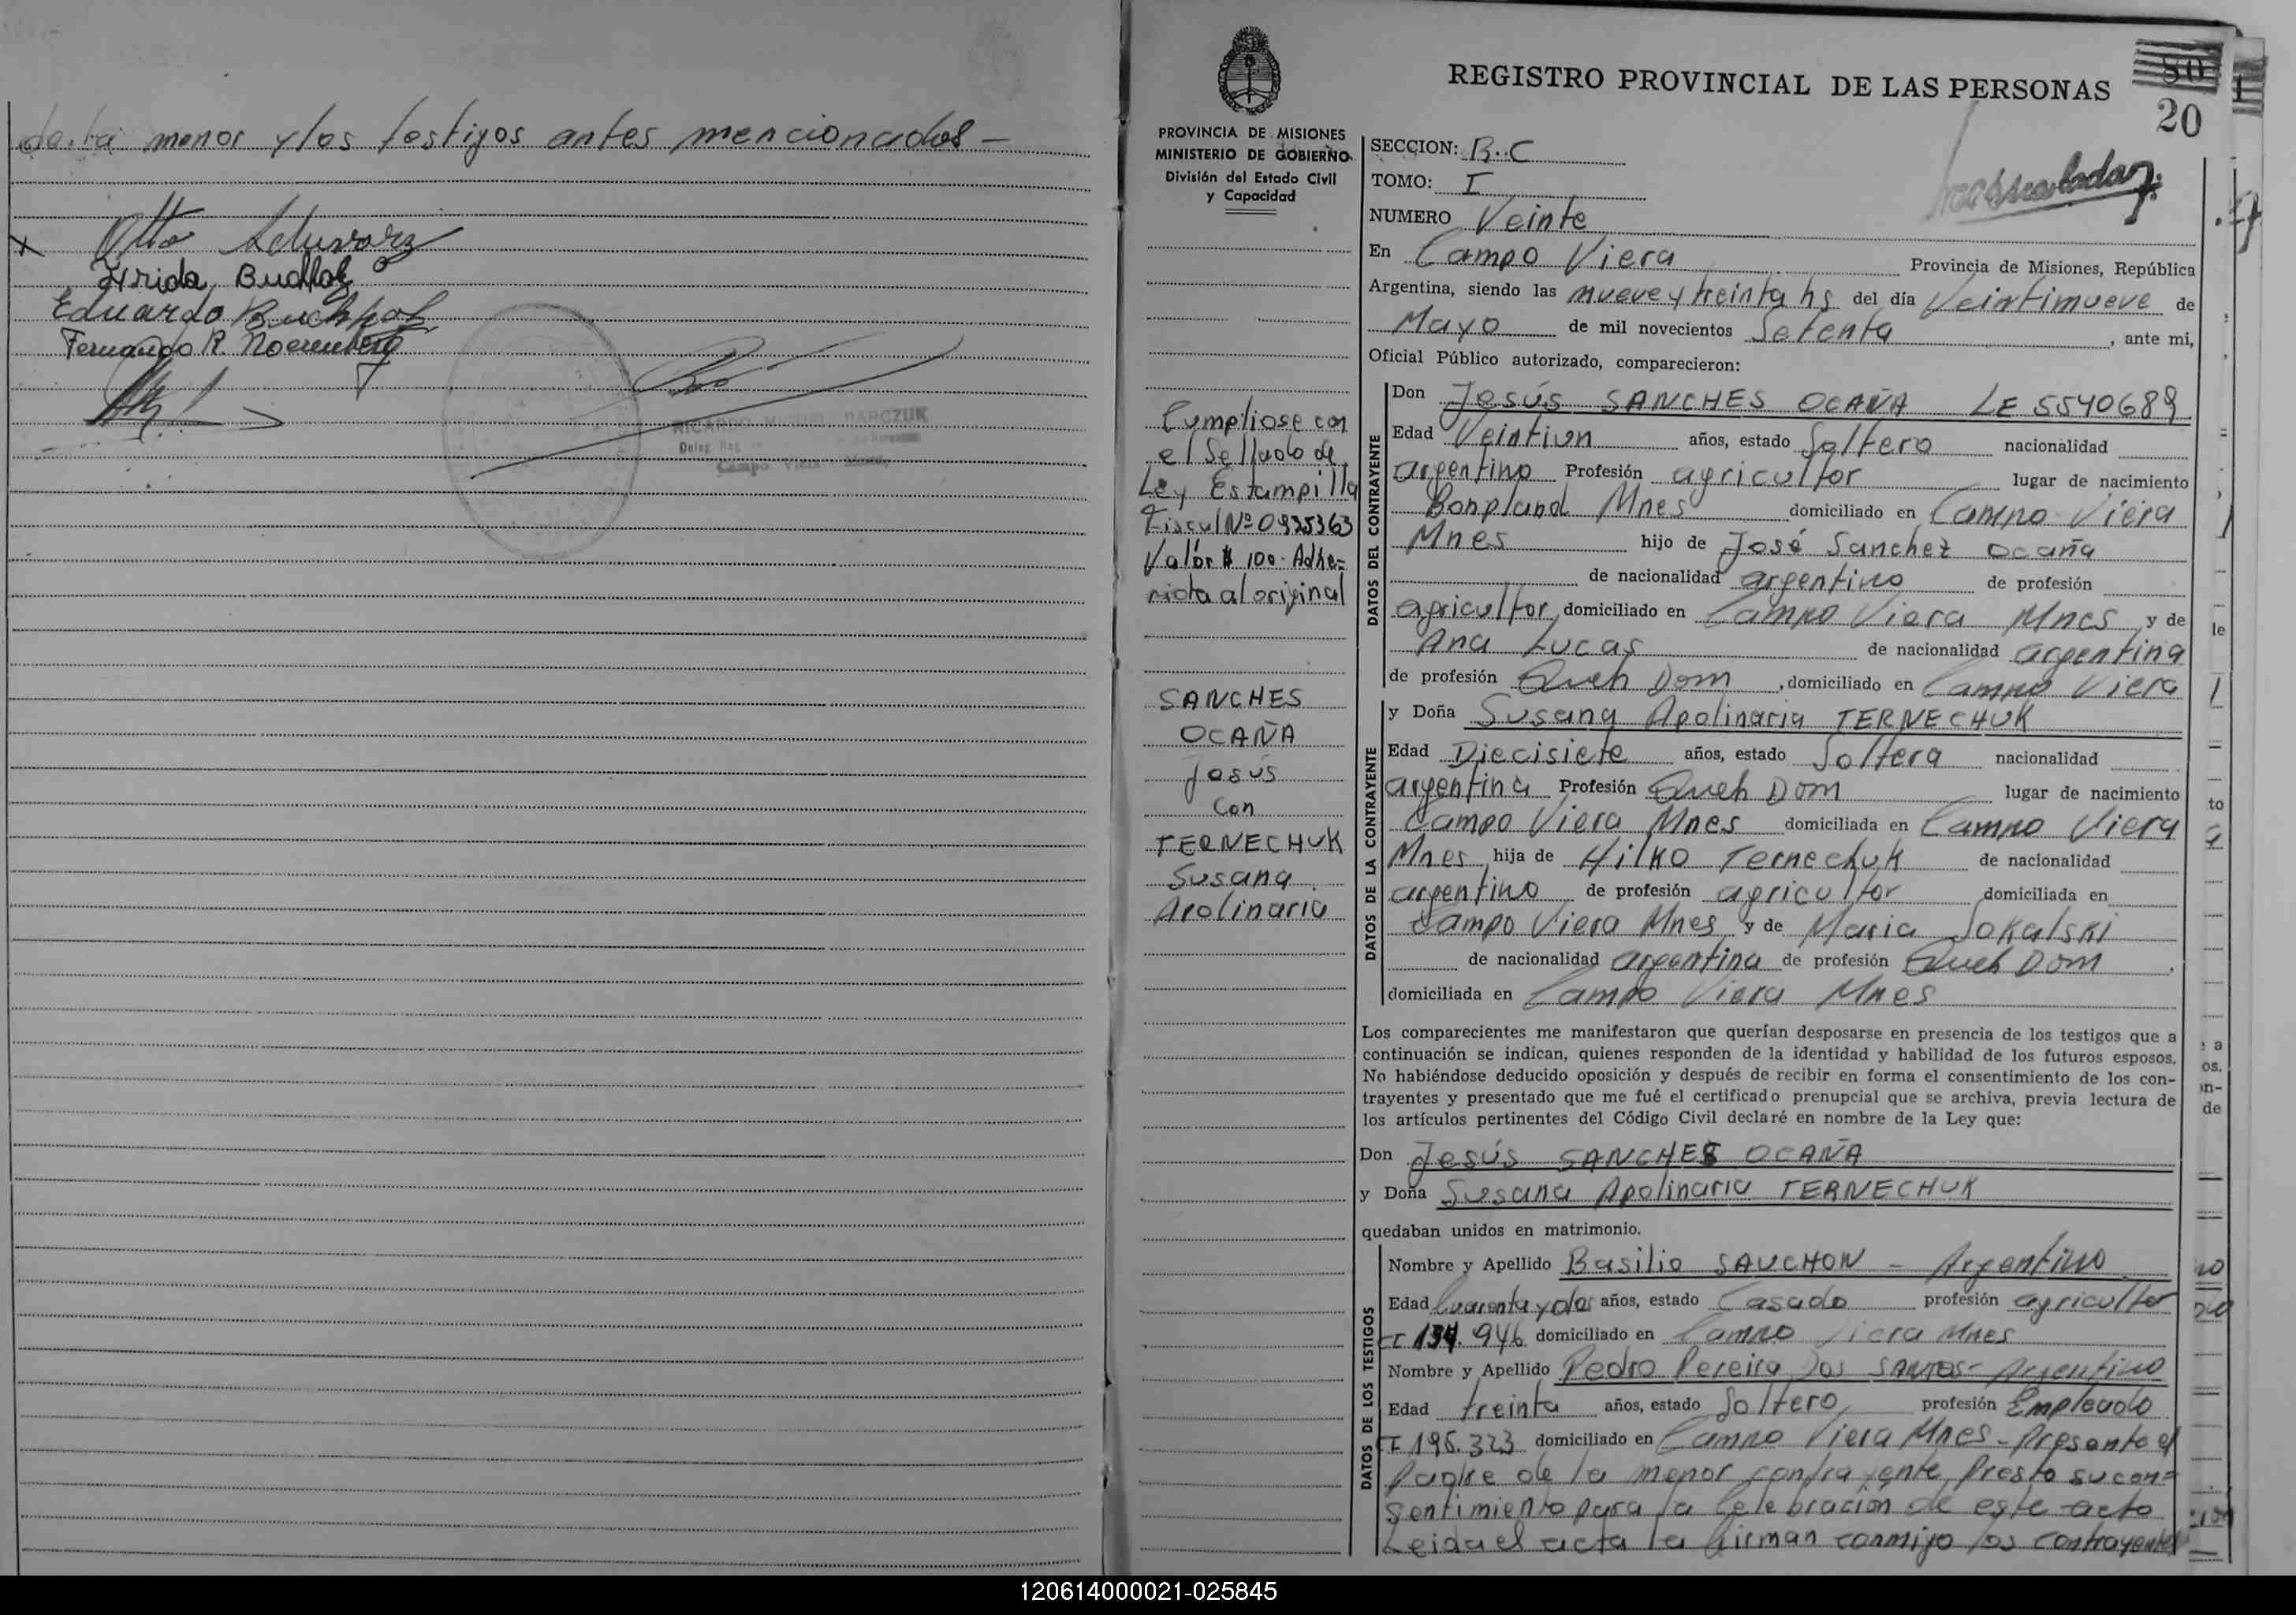 de la menor y los testigos antes mencionados -
Otto Schwarz
Frida Buchholz
Eduardo Buchholz
Fernando R. Noerenberg
RICARDO MIGUEL PARCZUK
Campo Viera
REGISTRO PROVINCIAL DE LAS PERSONAS
20
PROVINCIA DE MISIONES
MINISTERIO DE GOBIERNO
División del Estado Civil
y Capacidad
Cumpliose con
el Sellado de
Ley Estampilla
Fiscal Nº 0935363
Valór $ 100.- Adhe=
rida al original
SANCHES
OCAÑA
Jesús
Con
TERNECHUK
Susana
Apolinaria
SECCION: B.C
TOMO: I
NUMERO Veinte
En Campo Viera Provincia de Misiones, República
Argentina, siendo las nueve y treinta hs del día Veintinueve de
Mayo de mil novecientos Setenta, ante mi,
Oficial Público autorizado, comparecieron:
DATOS DEL CONTRAYENTE
Don Jesús SANCHES OCAÑA LE 5540689
Edad Veintiun años, estado Soltero nacionalidad
argentino Profesión agricultor lugar de nacimiento
Bonpland Mnes domiciliado en Campo Viera
Mnes hijo de José Sanchez Ocaña
de nacionalidad argentino de profesión
agricultor, domiciliado en Campo Viera Mnes y de
Ana Lucas de nacionalidad argentina
de profesión Queh Dom, domiciliado en Campo Viera
DATOS DE LA CONTRAYENTE
y Doña Susana Apolinaria TERNECHUK
Edad Diecisiete años, estado Soltera nacionalidad
argentina Profesión Queh Dom lugar de nacimiento
Campo Viera Mnes domiciliada en Campo Viera
Mnes hija de Hilko Ternechuk de nacionalidad
argentino de profesión agricultor domiciliada en
Campo Viera Mnes y de Maria Sokalski
de nacionalidad argentina de profesión Queh Dom,
domiciliada en Campo Viera Mnes
Los comparecientes me manifestaron que querían desposarse en presencia de los testigos que a
continuación se indican, quienes responden de la identidad y habilidad de los futuros esposos.
No habiéndose deducido oposición y después de recibir en forma el consentimiento de los con-
trayentes y presentado que me fué el certificado prenupcial que se archiva, previa lectura de
los artículos pertinentes del Código Civil declaré en nombre de la Ley que:
Don Jesús SANCHES OCAÑA
y Doña Susana Apolinaria TERNECHUK
quedaban unidos en matrimonio.
DATOS DE LOS TESTIGOS
Nombre y Apellido Basilio SAUCHON - Argentino
Edad Cuarenta y dos años, estado Casado profesión agricultor
CI 134.946 domiciliado en Campo Viera Mnes
Nombre y Apellido Pedro Pereira Dos SANTOS - Argentino
Edad treinta años, estado Soltero, profesión Empleado
CI 195.323 domiciliado en Campo Viera Mnes - Presente el
padre de la menor contrayente, Presto su con=
sentimiento para la Celebración de este acto
Leida el acta la firman conmigo los contrayentes
120614000021-025845